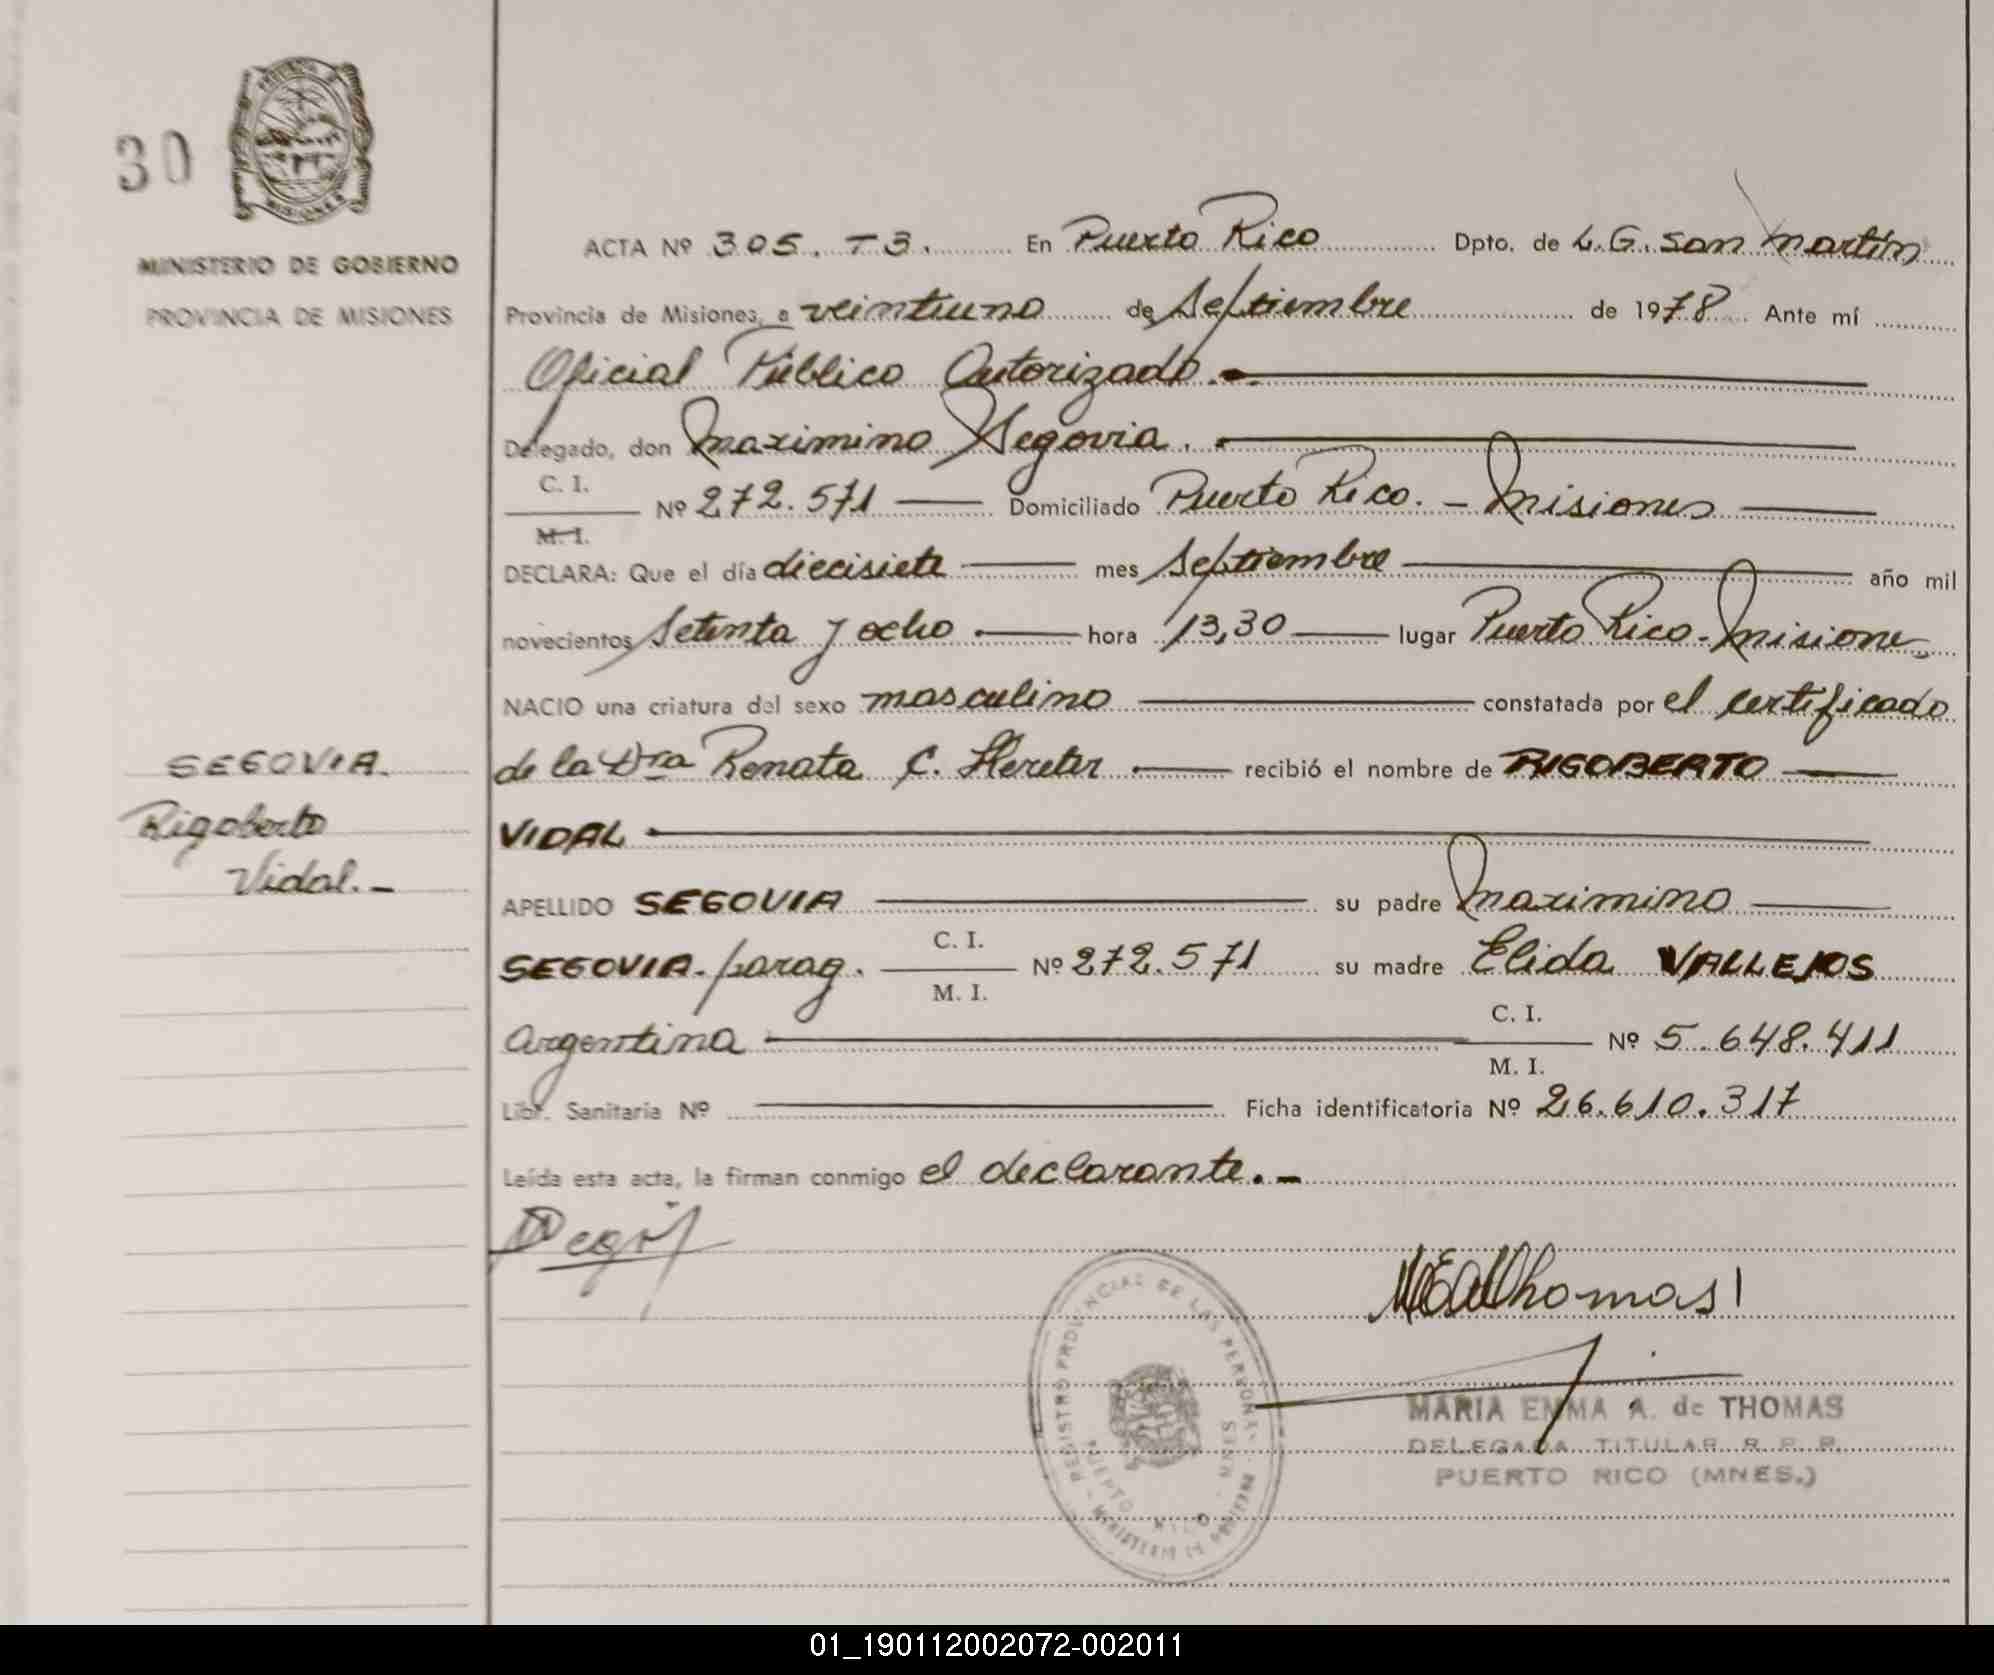 30
MINISTERIO DE GOBIERNO
PROVINCIA DE MISIONES
ACTA Nº 305. T3. En Puerto Rico Dpto. de L.G. San Martín
Provincia de Misiones, a veintiuno de Septiembre de 1978 Ante mí
Oficial Público Autorizado.
Delegado, don Maximino Segovia.
C. I.
Nº 272.571 Domiciliado Puerto Rico. - Misiones
M. I.
DECLARA: Que el día diecisiete mes Septiembre año mil
novecientos Setenta y ocho hora 13,30 lugar Puerto Rico - Misiones
NACIO una criatura del sexo masculino constatada por el certificado
de la Dra Renata C. recibió el nombre de RIGOBERTO
VIDAL
SEGOVIA.
Rigoberto
Vidal.-
APELLIDO SEGOVIA su padre Maximino
SEGOVIA. parag. C. I. M. I. Nº 272.571 su madre Elida VALLEJOS
Argentina C. I. M. I. Nº 5.648.411
Libr. Sanitaria Nº Ficha identificatoria Nº 26.610.317
Leída esta acta, la firman conmigo el declarante.-
REGISTRO PROVINCIAL DE LAS PERSONAS
PUERTO RICO - MNES
MINISTERIO DE GOBIERNO
MARIA EMMA A. de THOMAS
DELEGADA TITULAR R. P. P.
PUERTO RICO (MNES.)
01_190112002072-002011